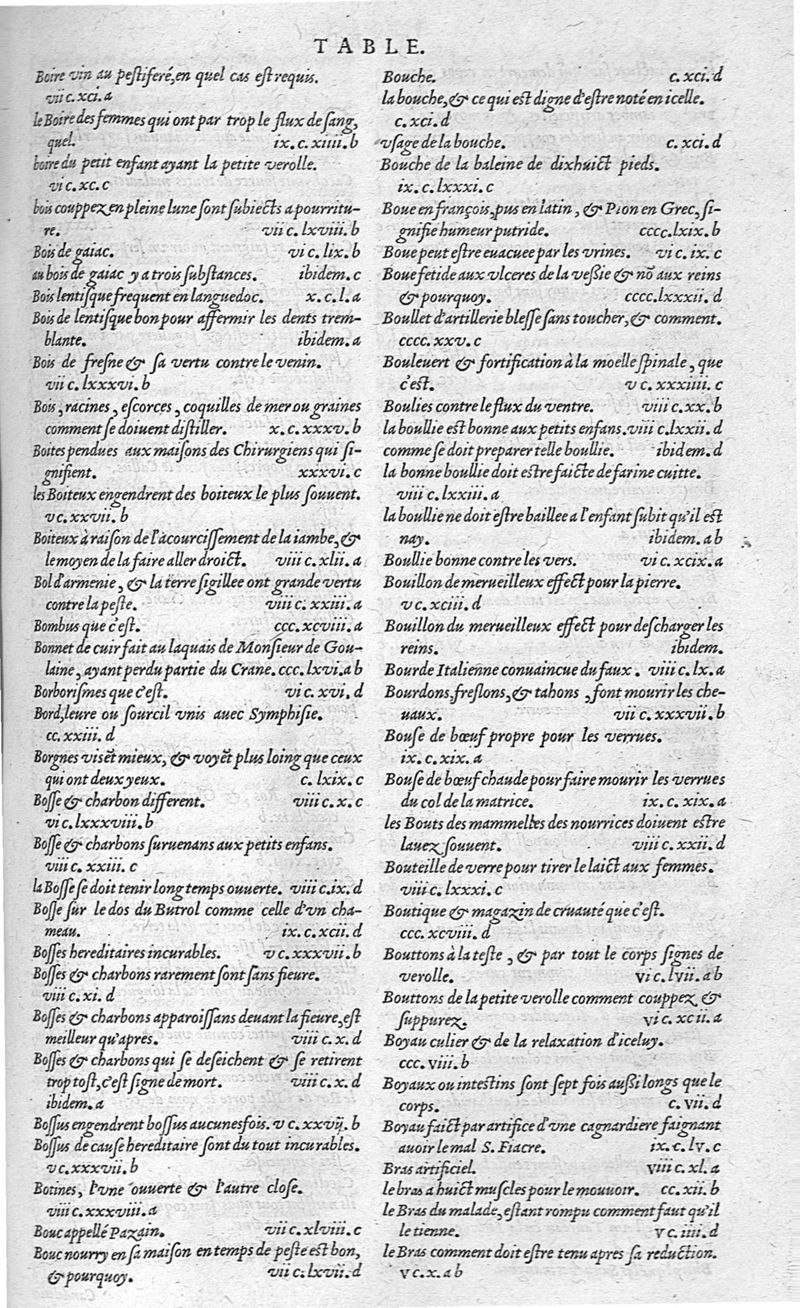 TABLE.
Boire vin au pestiferé, en quel cas est requis.
vii c. xci. a
le Boire des femmes qui ont par trop le flux de sang,
quel. ix. c. xiiii. b
boire du petit enfant ayant la petite verolle.
vi c. xc. c
bois couppez en pleine lune sont subiects a pourritu-
re. vii c. lxviii. b
Bois de gaiac. vi c. lix. b
au bois de gaiac y a trois substances. ibidem. c
Bois lentisque frequent en languedoc. x. c. l. a
Bois de lentisque bon pour affermir les dents trem-
blante. ibidem. a
Bois de fresne & sa vertu contre le venin.
vii c. lxxxvi. b
Bois, racines, escorces, coquilles de mer ou graines
comment se doiuent distiller. x. c. xxxv. b
Boites pendues aux maisons des Chirurgiens qui si-
gnifient. xxxvi. c
les Boiteux engendrent des boiteux le plus souuent.
v c. xxvii. b
Boiteux à raison de l'acourcissement de la iambe, &
le moyen de la faire aller droict. viii c. xlii. a
Bol d'armenie, & la terre sigillee ont grande vertu
contre la peste. viii c. xxiii. a
Bombus que c'est. ccc. xcviii. a
Bonnet de cuir fait au laquais de Monsieur de Gou-
laine, ayant perdu partie du Crane. ccc. lxvi. a b
Borborismes que c'est. vi c. xvi. d
Bord, leure ou sourcil vnis auec Symphisie.
cc. xxiii. d
Borgnes visēt mieux, & voyēt plus loing que ceux
qui ont deux yeux. c. lxix. c
Bosse & charbon different. viii c. x. c
vi c. lxxxviii. b
Bosse & charbons suruenans aux petits enfans.
viii c. xxiii. c
la Bosse se doit tenir long temps ouuerte. viii c. ix. d
Bosse sur le dos du Butrol comme celle d'vn cha-
meau. ix. c. xcii. d
Bosses hereditaires incurables. v c. xxxvii. b
Bosses & charbons rarement sont sans fieure.
viii c. xi. d
Bosses & charbons apparoissans deuant la fieure, est
meilleur qu'apres. viii c. x. d
Bosses & charbons qui se deseichent & se retirent
trop tost, c'est signe de mort. viii c. x. d
ibidem. a
Bossus engendrent bossus aucunesfois. v c. xxvij. b
Bossus de cause hereditaire sont du tout incurables.
v c. xxxvii. b
Botines, l'vne ouuerte & l'autre close.
viii c. xxxviii. a
Bouc appellé Pazain. vii c. xlviii. c
Bouc nourry en sa maison en temps de peste est bon,
& pourquoy. vii c. lxvii. d
Bouche. c. xci. d
la bouche, & ce qui est digne d'estre noté en icelle.
c. xci. d
vsage de la bouche. c. xci. d
Bouche de la baleine de dixhuict pieds.
ix. c. lxxxi. c
Boue en françois, pus en latin, & Pion en Grec, si-
gnifie humeur putride. cccc. lxix. b
Boue peut estre euacuee par les vrines. vi c. ix. c
Boue fetide aux vlceres de la vessie & nō aux reins
& pourquoy. cccc. lxxxii. d
Boullet d'artillerie blesse sans toucher, & comment.
cccc. xxv. c
Bouleuert & fortification à la moelle spinale, que
c'est. v c. xxxiiii. c
Boulies contre le flux du ventre. viii c. xx. b
la boullie est bonne aux petits enfans. viii c. lxxii. d
comme se doit preparer telle boullie. ibidem. d
la bonne boullie doit estre faicte de farine cuitte.
viii c. lxxiii. a
la boullie ne doit estre baillee a l'enfant subit qu'il est
nay. ibidem. a b
Boullie bonne contre les vers. vi c. xcix. a
Bouillon de merueilleux effect pour la pierre.
v c. xciii. d
Bouillon du merueilleux effect pour descharger les
reins. ibidem.
Bourde Italienne conuaincue du faux. viii c. lx. a
Bourdons, freslons, & tahons, font mourir les che-
uaux. vii c. xxxvii. b
Bouse de bœuf propre pour les verrues.
ix. c. xix. a
Bouse de bœuf chaude pour faire mourir les verrues
du col de la matrice. ix. c. xix. a
les Bouts des mammelles des nourrices doiuent estre
lauez souuent. viii c. xxii. d
Bouteille de verre pour tirer le laict aux femmes.
viii c. lxxxi. c
Boutique & magazin de cruauté que c'est.
ccc. xcviii. d
Bouttons à la teste, & par tout le corps signes de
verolle. vi c. lvii. a b
Bouttons de la petite verolle comment couppez &
suppurez. vi c. xcii. a
Boyau culier & de la relaxation d'iceluy.
ccc. viii. b
Boyaux ou intestins sont sept fois aussi longs que le
corps. c. vii. d
Boyau faict par artifice d'vne cagnardiere faignant
auoir le mal S. Fiacre. ix. c. lv. c
Bras artificiel. viii c. xl. a
le bras a huict muscles pour le mouuoir. cc. xii. b
le Bras du malade, estant rompu comment faut qu'il
le tienne. v c. iiii. d
le Bras comment doit estre tenu apres sa reduction.
v c. x. a b